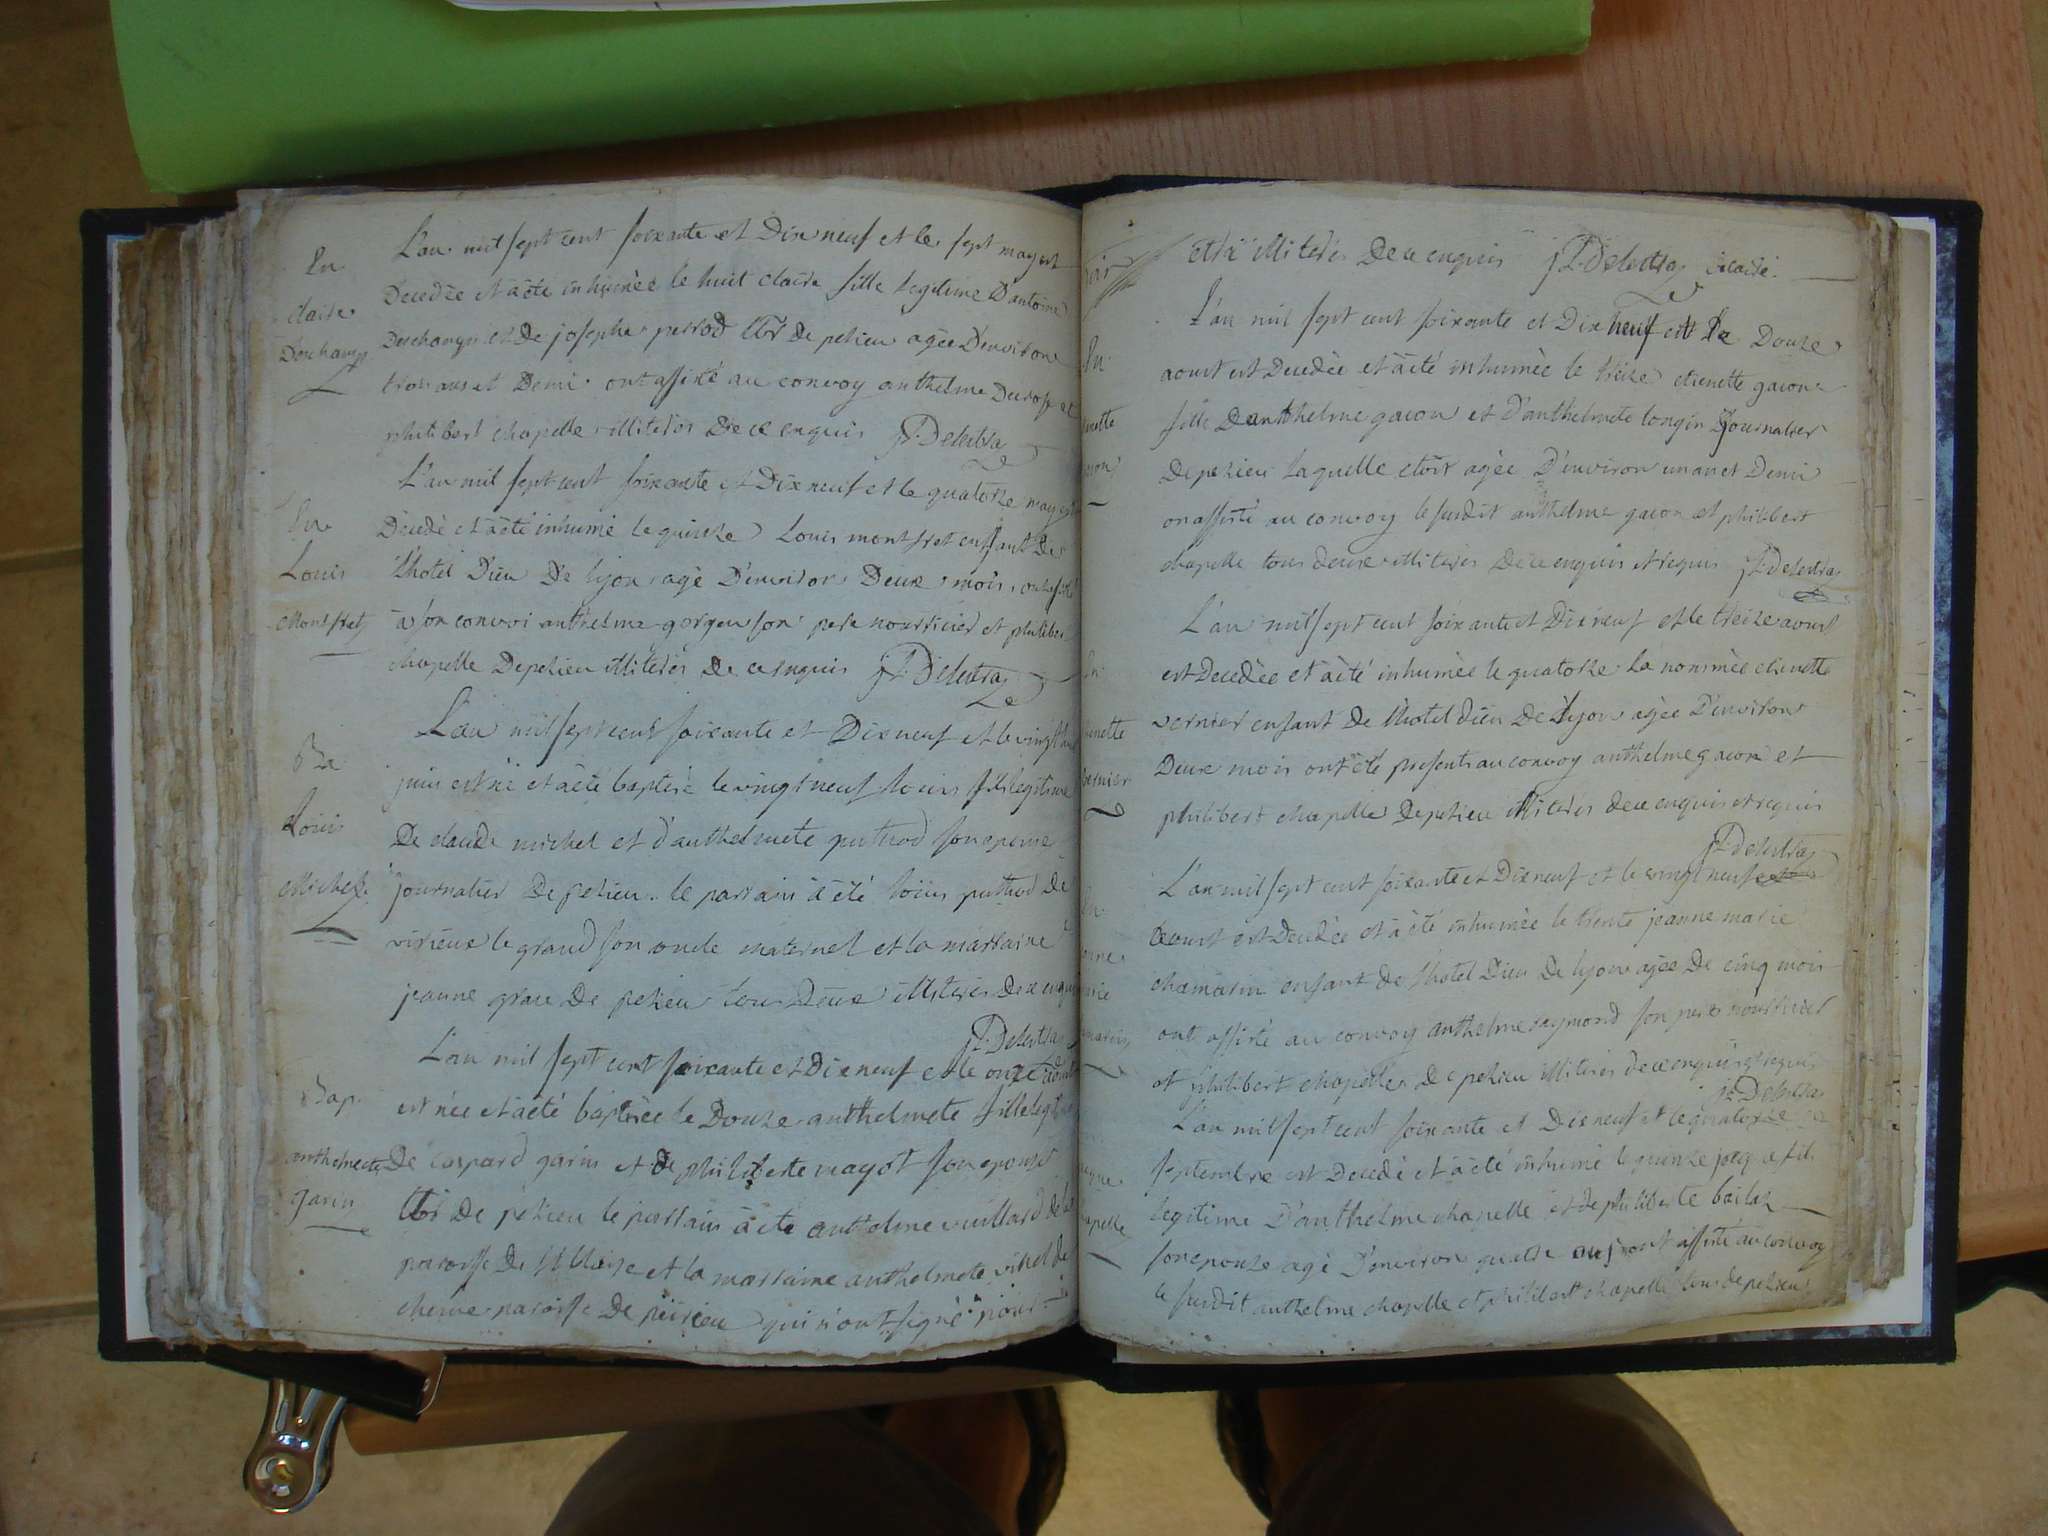 En
claire
Deschamps
L'an mil sept cent soixante et Dix neuf et le sept may est
Decedée et a été inhumée le huit claire fille legitime D'antoine
Deschamps et de josephe perrod lbr de pezieu agée D'environ
trois ans et Demi ont assisté au convoy anthelme Ducrost et
philibert chapelle illiterés De ce enquis
L'an mil sept cent soixante et Dix neuf et le quatorze may est
En
Louis
Montfret
Décedé et a été inhumé le quinze Louis montfret enfant De
l'hotel Dieu De lyon agé D'environ Deux mois, ont assisté
à son convoi anthelme gorgeu son pere nourricier et philibert
chapelle De pezieu illiterés De ce enquis
L'an mil sept cent soixante et Dix neuf et le vingt
Louis
Michel
juin est né et a été baptisé le vingt neuf louis fils legitime
De claude michel et d'anthelmete puthod son epouse
journalier De pezieu. le parrain a été louis puthod De
virieux le grand son oncle maternel et la marraine
jeanne grau De pezieu tous Deux illiterés De ce enquis
L'an mil sept cent soixante et Dix neuf et le onze aoust
Bap.
anthelmete
garin
est née et a été baptisée le Douze anthelmete fille legitime
De gaspard garin et de philiberte mayot son epouse
lbr De pezieu le parrain a été anthelme vuillard de la
paroisse De St blaise et la marraine anthelmete
paroisse De peizieu qui n'ont signé pour
etre illiterés De ce enquis vicaire.
L'an mil sept cent soixante et Dix neuf et le Douze
En
aoust est Decedée et a été inhumée le treize etienette gacon
fille D'anthelme gacon et D'anthelmete longin Journalier
De pezieu laquelle etoit agée D'environ un an et Demi
on assisté au convoy le susdit anthelme gacon et philibert
chapelle tous deux illiterés De ce enquis et requis
L'an mil sept cent soixante et Dix neuf et le treize aoust
est Decedée et a été inhumée le quatorze la nommée etienette
vernier enfant De l'hotel dieu De lyon agée D'environ
Deux mois ont été presents au convoy anthelme gacon et
philibert chapelle De pezieu illiterés de ce enquis et requis
L'an mil sept cent soixante et Dix neuf et le vingt neuf
aoust est Decedée et a été inhumée le trente jeanne marie
chamarin enfant De l'hotel Dieu De lyon agée De cinq mois
ont assisté au convoy anthelme reymond son pere nourricier
et philibert chapelle De pezieu illiterés de ce enquis et requis
L'an mil sept cent soixante et Dix neuf et le quatorze
septembre est Decedé et a été inhumé le quinze fils
legitime D'anthelme chapelle et de philiberte
son epouse agé D'environ quatre ans ont assisté au convoy
le susdit anthelme chapelle et philibert chapelle tous de pezieu